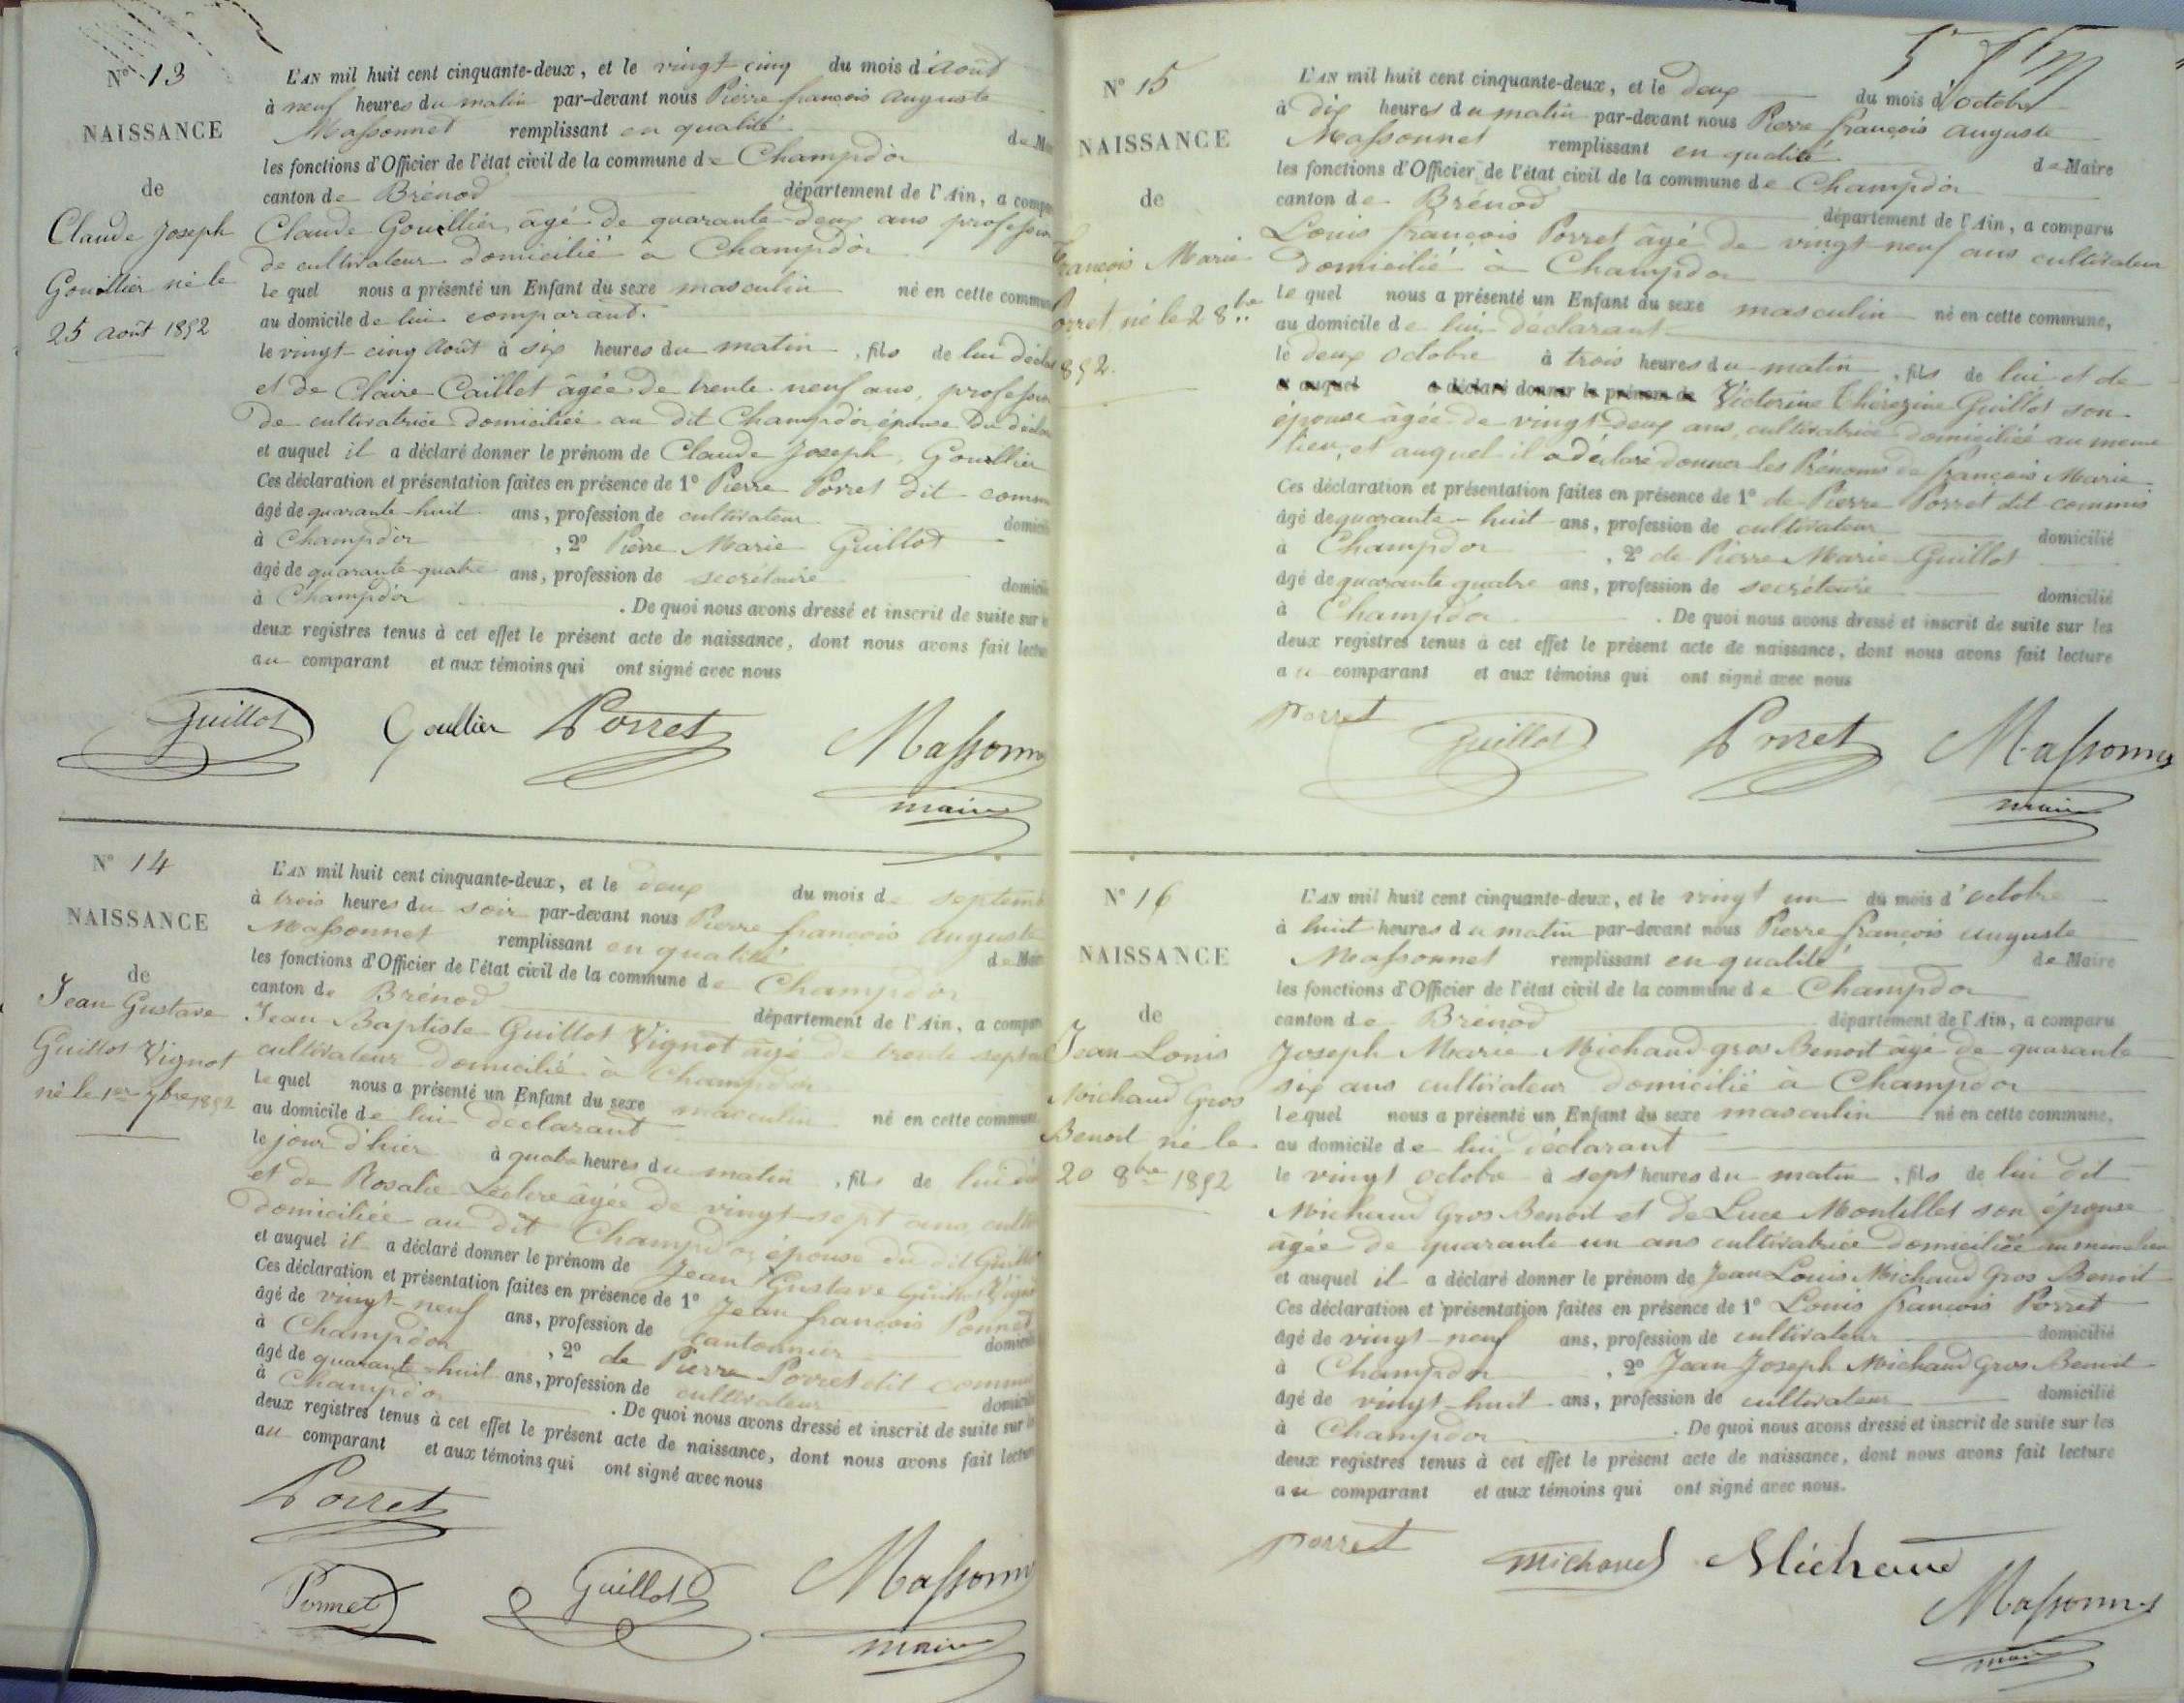 N° 13
NAISSANCE
de
Claude Joseph
Gouillier né le
25 août 1852
L'AN mil huit cent cinquante-deux, et le vingt cinq du mois d'août
à neuf heures du matin par-devant nous Pierre françois auguste
Massonnet remplissant en qualité de Mai
les fonctions d'Officier de l'état civil de la commune de Champdor
canton de Brénod département de l'Ain, a compa
Claude Gouillier, âgé de quarante-deux ans profession
de cultivateur domicilié à Champdor
le quel nous a présenté un Enfant du sexe masculin né en cette commune
au domicile de lui comparant.
le vingt-cinq août à six heures du matin, fils de lui décla
et de Claire Caillet âgée de trente neuf ans, profession
de cultivatrice domiciliée au dit Champdor, épouse du décla
et auquel il a déclaré donner le prénom de Claude Joseph, Gouillier
Ces déclaration et présentation faites en présence de 1° Pierre Porret dit commu
âgé de quarante-huit ans, profession de cultivateur domicili
à Champdor, 2° Pierre Marie Guillot
âgé de quarante-quatre ans, profession de secrétaire domicili
à Champdor. De quoi nous avons dressé et inscrit de suite sur le
deux registres tenus à cet effet le présent acte de naissance, dont nous avons fait lectur
au comparant et aux témoins qui ont signé avec nous
Guillot Goullier Porret Massonn
maire
N° 14
NAISSANCE
de
Jean Gustave
Guillot Vignot
né le 1er 7bre 1852
L'AN mil huit cent cinquante-deux, et le deux du mois de septemb
à trois heures du soir par-devant nous Pierre françois auguste
Massonnet remplissant en qualité de Mai
les fonctions d'Officier de l'état civil de la commune de Champdor
canton de Brénod département de l'Ain, a compar
Jean Baptiste Guillot Vignot âgé de trente sept an
cultivateur domicilié à Champdor
le quel nous a présenté un Enfant du sexe masculin né en cette commune
au domicile de lui déclarant
le jour d'hier à quatre heures du matin, fils de lui dé
et de Rosalie Leclerc âgée de vingt-sept ans, culti
domiciliée au dit Champdor, épouse du dit Guillot
et auquel il a déclaré donner le prénom de Jean Gustave Guillot Vigno
Ces déclaration et présentation faites en présence de 1° Jean françois Ponnet
âgé de vingt-neuf ans, profession de cantonnier domicili
à Champdor, 2° de Pierre Porret dit commu
âgé de quarante-huit ans, profession de cultivateur domicili
à Champdor. De quoi nous avons dressé et inscrit de suite sur le
deux registres tenus à cet effet le présent acte de naissance, dont nous avons fait lectur
au comparant et aux témoins qui ont signé avec nous
Porret
Ponnet Guillot Massonn
maire
N° 15
NAISSANCE
de
françois Marie
Porret né le 2 8bre
1852.
L'AN mil huit cent cinquante-deux, et le deux du mois d'octobre
à dix heures du matin par-devant nous Pierre françois auguste
Massonnet remplissant en qualité de Maire
les fonctions d'Officier de l'état civil de la commune de Champdor
canton de Brénod département de l'Ain, a comparu
Louis françois Porret âgé de vingt-neuf ans cultivateur
domicilié à Champdor
le quel nous a présenté un Enfant du sexe masculin né en cette commune,
au domicile de lui déclarant
le deux octobre à trois heures du matin, fils de lui et de
et auquel a déclaré donner le prénom de Victorine Thérezine Guillot son
épouse âgée de vingt-deux ans, cultivatrice domiciliée au meme
lieu, et auquel il a déclaré donner les Prénoms de françois Marie
Ces déclaration et présentation faites en présence de 1° de Pierre Porret dit commis
âgé de quarante-huit ans, profession de cultivateur domicilié
à Champdor, 2° de Pierre Marie Guillot
âgé de quarante quatre ans, profession de secrétaire domicilié
à Champdor. De quoi nous avons dressé et inscrit de suite sur les
deux registres tenus à cet effet le présent acte de naissance, dont nous avons fait lecture
au comparant et aux témoins qui ont signé avec nous
Porret Guillot Porret Massonne
maire
N° 16
NAISSANCE
de
Jean-Louis
Michaud Gros
Benoit né le
20 8bre 1852
L'AN mil huit cent cinquante-deux, et le vingt un du mois d'octobre
à huit heures du matin par-devant nous Pierre françois auguste
Massonnet remplissant en qualité de Maire
les fonctions d'Officier de l'état civil de la commune de Champdor
canton de Brénod département de l'Ain, a comparu
Joseph Marie Michaud gros Benoit âgé de quarante
six ans cultivateur domicilié à Champdor
lequel nous a présenté un Enfant du sexe masculin né en cette commune,
au domicile de lui déclarant
le vingt octobre à sept heures du matin, fils de lui dit
Michaud Gros Benoit et de Luce Montillet son épouse
âgée de quarante un ans cultivatrice domiciliée au même lieu
et auquel il a déclaré donner le prénom de Jean Louis Michaud Gros Benoit
Ces déclaration et présentation faites en présence de 1° Louis françois Porret
âgé de vingt-neuf ans, profession de cultivateur domicilié
à Champdor, 2° Jean Joseph Michaud Gros Benoit
âgé de vingt-huit ans, profession de cultivateur domicilié
à Champdor. De quoi nous avons dressé et inscrit de suite sur les
deux registres tenus à cet effet le présent acte de naissance, dont nous avons fait lecture
au comparant et aux témoins qui ont signé avec nous.
Porret Michaud Michaud
Massonnet
maire